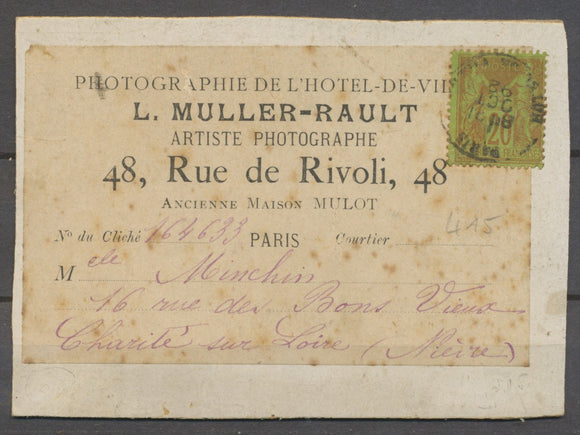 PHOTOGRAPHIE DE L'HOTEL-DE-VIL
L. MULLER-RAULT
ARTISTE PHOTOGRAPHE
48, Rue de Rivoli, 48
ANCIENNE MAISON MULOT
Nº du Cliché 164633 PARIS Courtier
415
M elle Minchin
16 rue des Bons Vieux
Charité sur Loire (Nièvre)
20